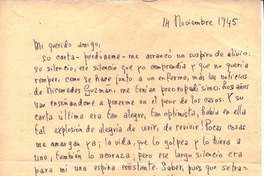 14 Noviembre 1945
Mi querido amigo,
su carta - perdóneme - me arrancó un suspiro de alivio:
su silencio, ese silencio que yo comprendía y que no quería
romper, como se hace junto a un enfermo, más las noticias
de Nicomedes Guzmán me tenían preocupadísimo. Los años
van enseñándome a ponerme en el peor de los casos. Y su
carta última era tan alegre, tan optimista, había en ella
tal explosión de alegría de vivir, de revivir! Pocas cosas
me amargan ya; la vida, que lo golpea y lo hiere a
uno, también lo acoraza; pero ese largo silencio era
para mí una espina constante. Saber, pues que se trata